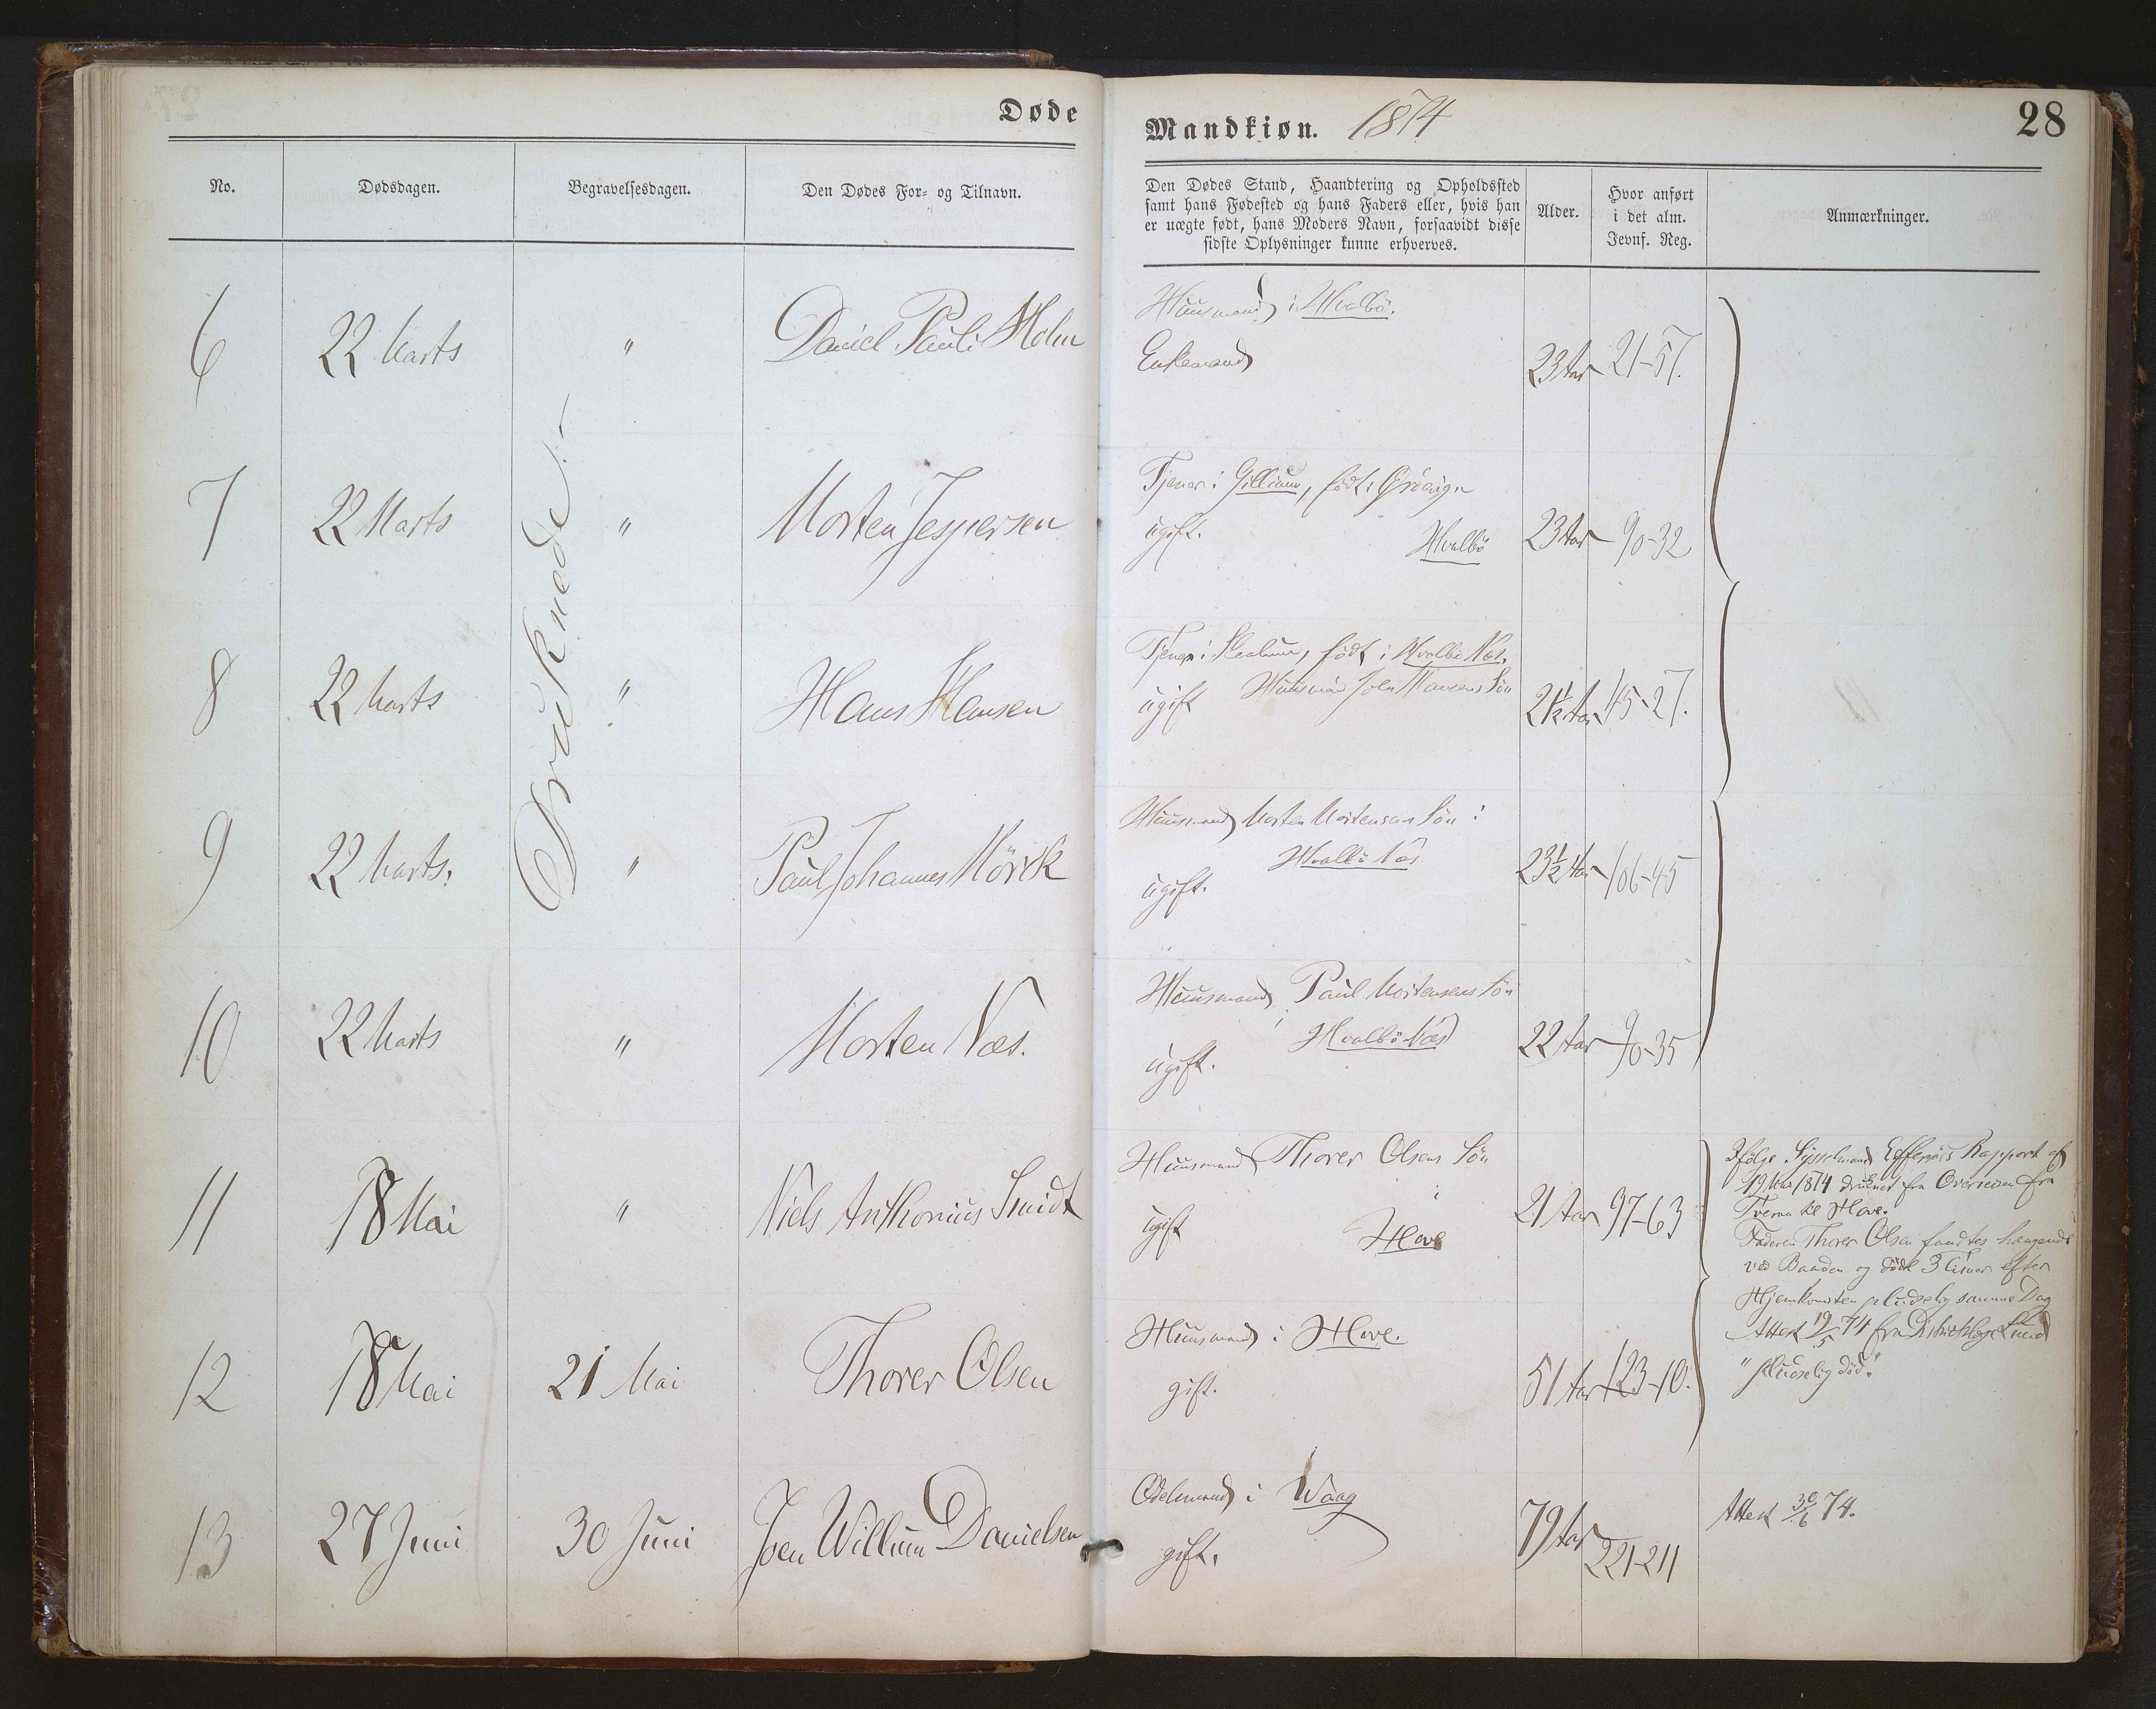 Døde
Mandkiøn. 1874
28
No.
Dødsdagen.
Begravelsesdagen.
Den Dødes For- og Tilnavn.
Den Dødes Stand, Haandtering og Opholdssted
samt hans Fødested og hans Faders eller, hvis han
er uægte født, hans Moders Navn, forsaavidt disse
sidste Oplysninger kunne erhverves.
Alder.
Hvor anført
i det alm.
Jevnf. Reg.
Anmærkninger.
Druknede.
6 22 Marts " Daniel Pauli Holm
Huusmand i Hvalbö.
Enkemand
23 Aar 21-57.
7 22 Marts " Morten Jespersen
Tjener i født i
ugift. Hvalbö
23 Aar 90-32
8 22 Marts " Hans Hansen
Tjener i født i Hvalbö Næs.
ugift Huusmand Hansens Sön
21½ Aar 145-27.
9 22 Marts. " Paul Johannes Mörck
Huusmand Morten Mortensens Sön i
Hvalbö Næs
ugift.
23½ Aar 106-45
10 22 Marts " Morten Næs.
Huusmand Paul Mortensens Sön
i Hvalbö Næs
ugift.
22 Aar 90-35
11 18 Mai " Niels Anthonius Smidt
Huusmand Thorer Olsens Sön
i
ugift Hove
21 Aar 97-63
Ifölge Sysselmand Effersöes Rapport af
19 Mai 1874 druknet fra Overreisen fra
Tveraa til Hove.
Faderen Thorer Olsen fandtes hængende
ved Baaden og döde 3 Timer efter
Hjemkomsten pludselig samme Dag
Attest 19/5 74 fra Districtslæge Lund
"pludselig död."
12 18 Mai 21 Mai Thorer Olsen
Huusmand i Hove.
gift.
51 Aar 123-10.
13 27 Juni 30 Juni Joen Willum Danielsen
Odelsmand i Waag
gift.
79 Aar
221-211
Attest 30/6 74.